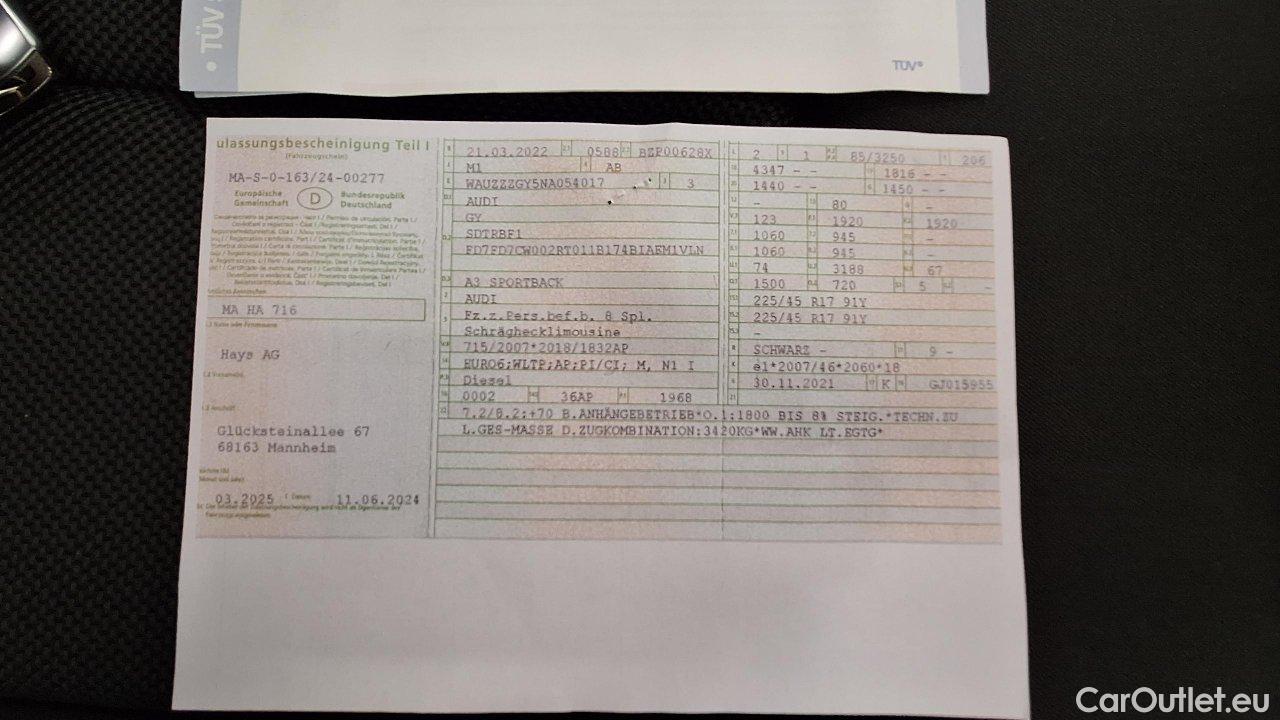 TÜV
TÜV®
ulassungsbescheinigung Teil I
(Fahrzeugschein)
MA-S-0-163/24-00277
Europäische Gemeinschaft
D
Bundesrepublik Deutschland
MA HA 716
Hays AG
Glücksteinallee 67
68163 Mannheim
03.2025 11.06.2024
21.03.2022 0588 BZP00628X
M1 AB
WAUZZZGY5NA054017 3
AUDI
GY
SDTRBF1
FD7FD7CW002RT011B174BIAEM1VLN
A3 SPORTBACK
AUDI
Fz.z.Pers.bef.b. 8 Spl.
Schräghecklimousine
715/2007*2018/1832AP
EURO6;WLTP;AP;PI/CI; M, N1 I
Diesel
0002 36AP 1968
2 1 85/3250 206
4347 - - 1816 - -
1440 - - 1450 - -
- 80 -
123 1920 1920
1060 945 -
1060 945 -
74 3188 67
1500 720 5 -
225/45 R17 91Y
225/45 R17 91Y
-
SCHWARZ - 9 -
e1*2007/46*2060*18
30.11.2021 K GJ015955
7.2/8.2:+70 B.ANHÄNGEBETRIEB*O.1:1800 BIS 8% STEIG.*TECHN.ZU
L.GES-MASSE D.ZUGKOMBINATION:3420KG*WW.AHK LT.EGTG*
CarOutlet.eu